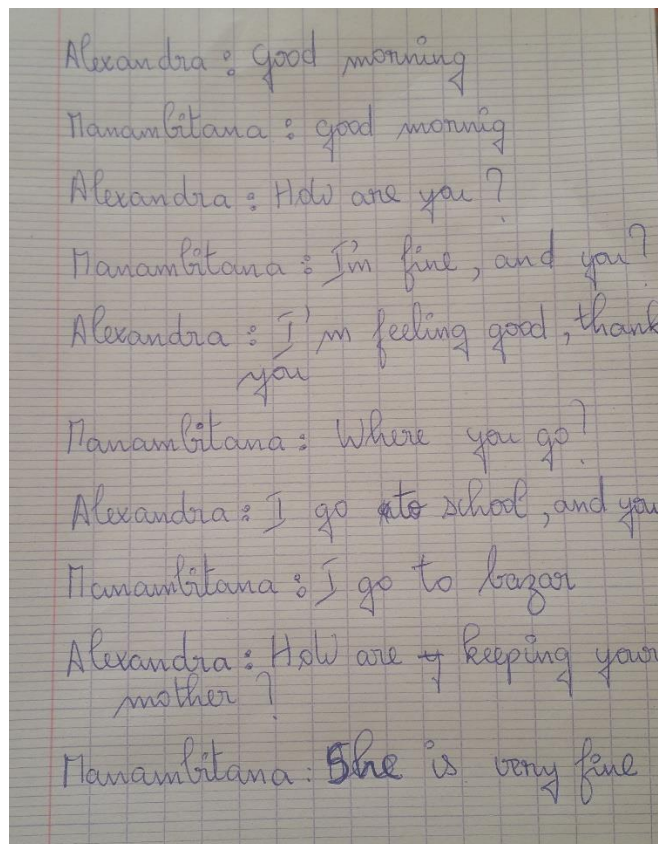 Alexandra : Good morning
Manambitana : good mornig
Alexandra : How are you ?
Manambitana : I'm fine, and you ?
Alexandra : I'm feeling good, thank
you
Manambitana : Where you go ?
Alexandra : I go to school, and you
Manambitana : I go to bazar
Alexandra : How are keeping your
mother ?
Manambitana : She is very fine